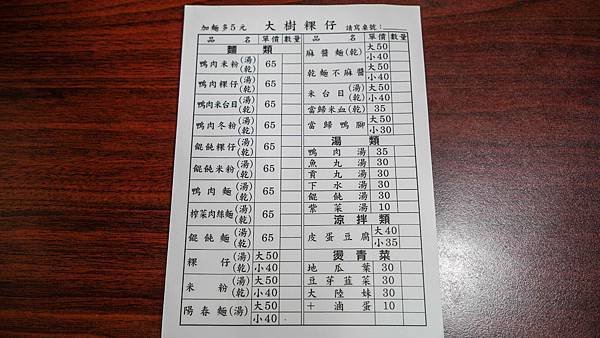 加麵多5元 大樹粿仔 請寫桌號:
品名 單價 數量
麵類
鴨肉米粉(湯)(乾) 65
鴨肉粿仔(湯)(乾) 65
鴨肉米台目(湯)(乾) 65
鴨肉冬粉(湯)(乾) 65
餛飩粿仔(湯)(乾) 65
餛飩米粉(湯)(乾) 65
鴨肉麵(湯)(乾) 65
榨菜肉絲麵(湯)(乾) 65
餛飩麵(湯)(乾) 65
粿仔(湯)(乾) 大50 小40
米粉(湯)(乾) 大50 小40
陽春麵(湯) 大50 小40
品名 單價 數量
麻醬麵(乾) 大50 小40
乾麵不麻醬 大50 小40
米台目(湯)(乾) 大50 小40
當歸米血(乾) 35
當歸鴨腳 大50 小30
湯類
鴨肉湯 35
魚丸湯 30
貢丸湯 30
下水湯 30
餛飩湯 30
紫菜湯 10
涼拌類
皮蛋豆腐 大40 小35
燙青菜
地瓜葉 30
豆芽韮菜 30
大陸妹 30
＋滷蛋 10